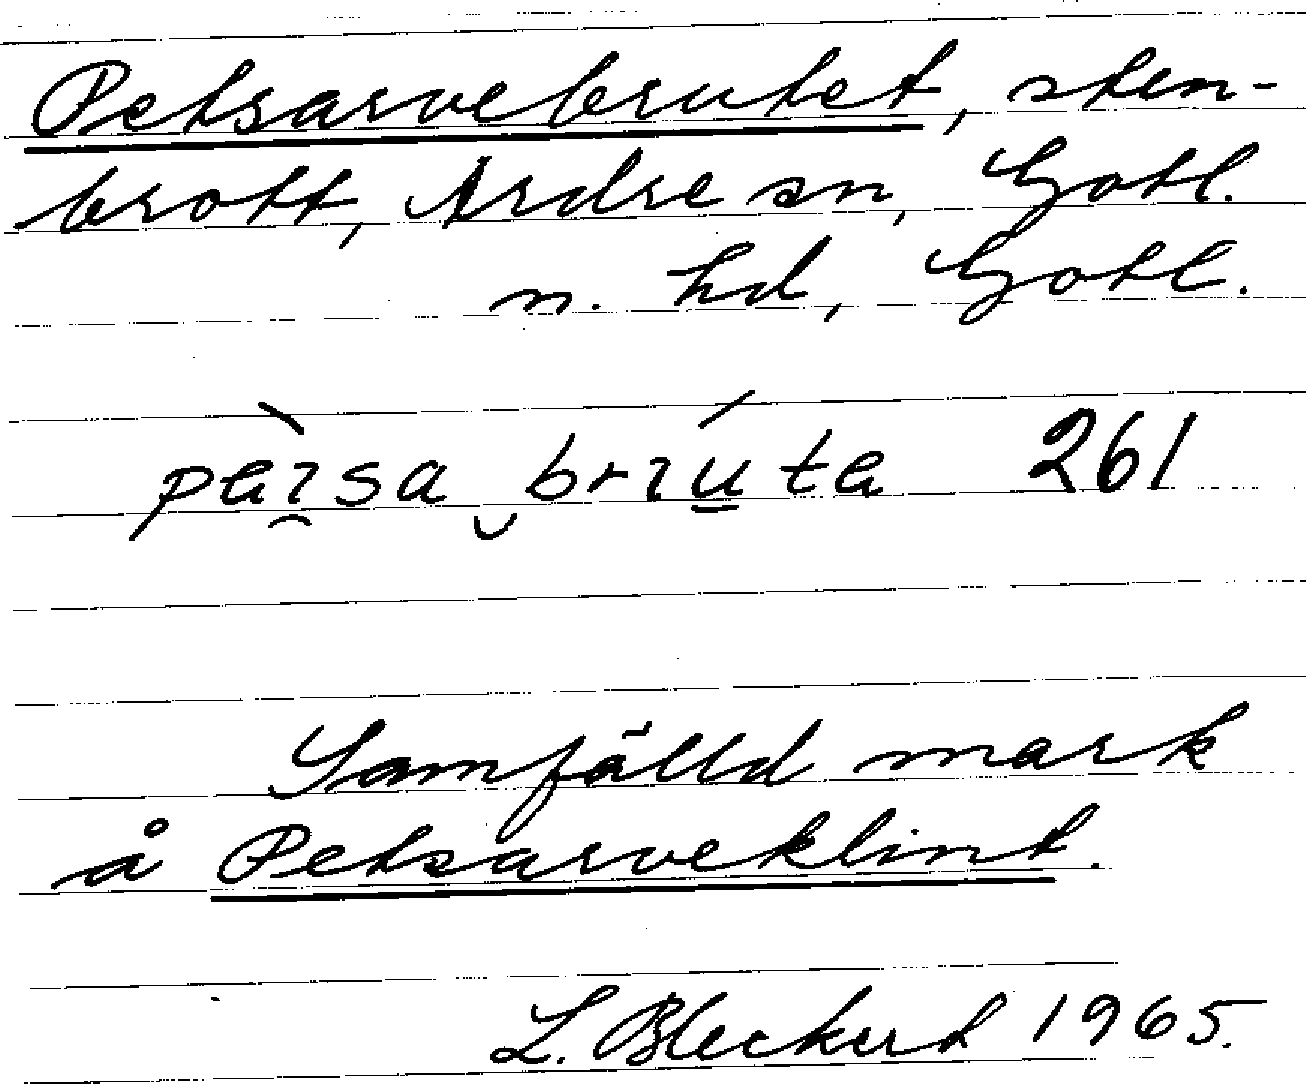 Petsarvebrutet, sten-
brott, Ardre sn, Gotl.
n. hd, Gotl.
261
Samfälld mark
å Petsarveklint.
L. Bleckert 1965.